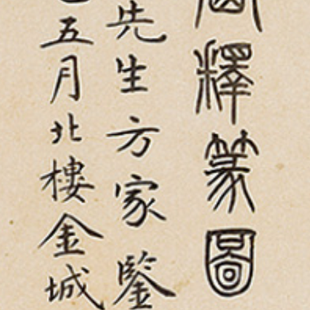 釋篆圖
先生方家鑒
五月北樓金城